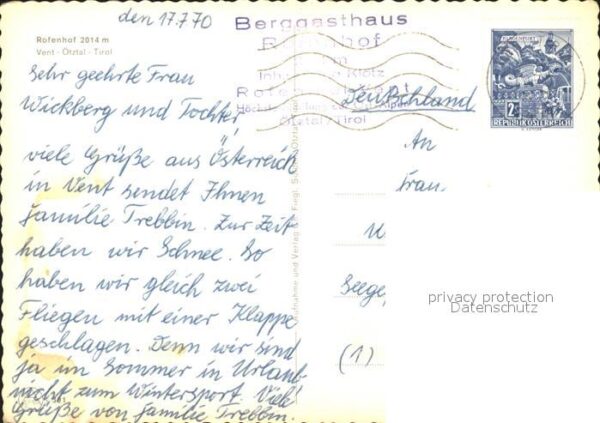 den 17.7.70
Rofenhof 2014 m
Vent - Ötztal - Tirol
Sehr geehrte Frau
Wickberg und Tochter,
viele Grüße aus Österreich
in Vent sendet Ihnen
Familie Trebbin. Zur Zeit
haben wir Schnee. So
haben wir gleich zwei
Fliegen mit einer Klappe
geschlagen. Denn wir sind
ja im Sommer in Urlaub
nicht zum Wintersport. Viele
Grüße von Familie Trebbin.
Berggasthaus
Rofenhof
Klotz
Ötztal/Tirol
Aufnahme und Verlag
2 S
REPUBLIK ÖSTERREICH
Deutschland
An
Frau
(1)
privacy protection
Datenschutz